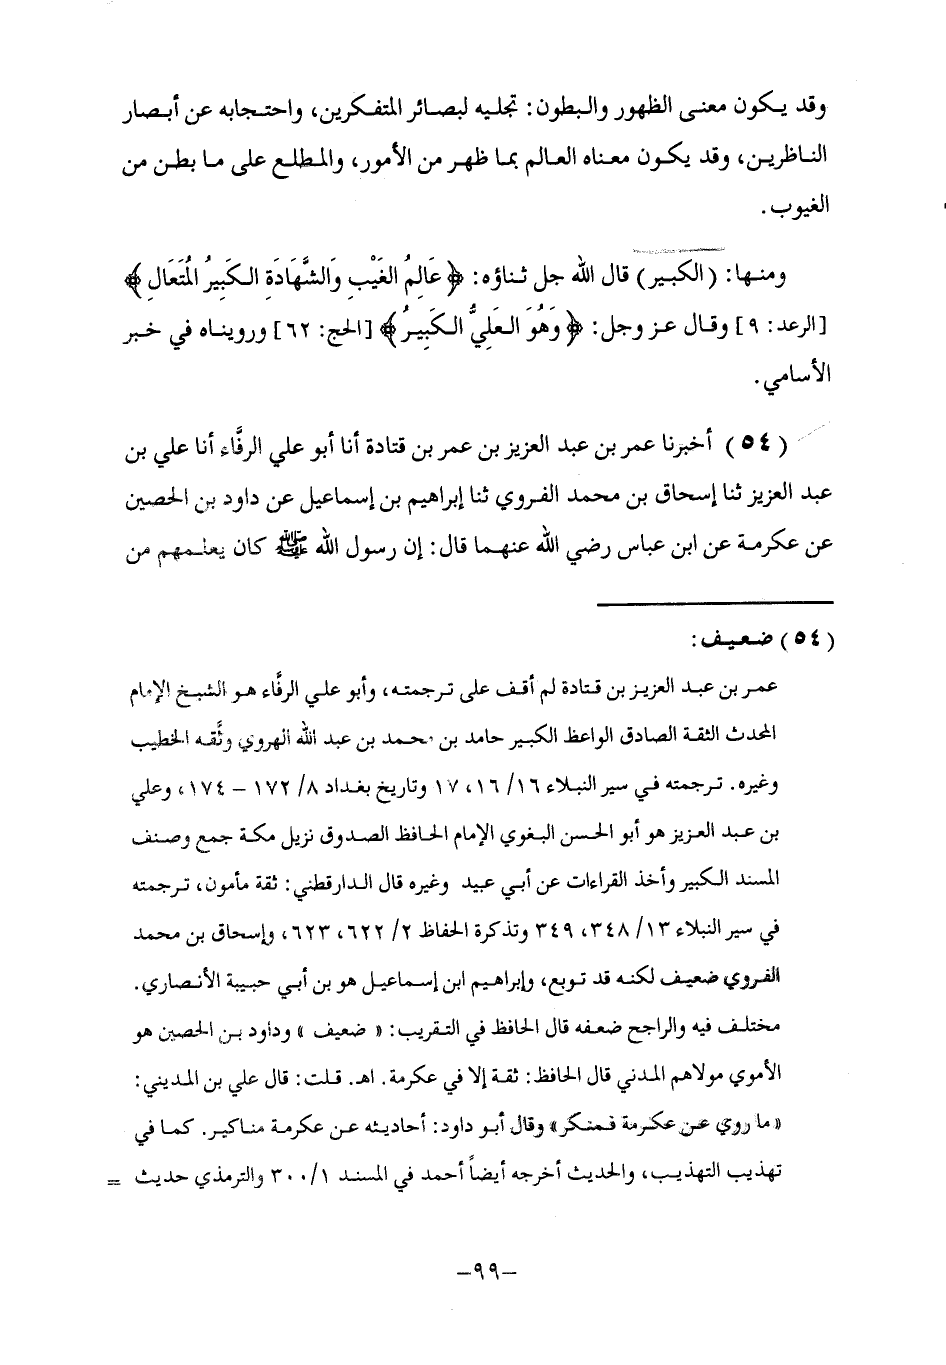 وقد يكون معنى الظهور والبطون: تجليه لبصائر المتفكرين، واحتجابه عن أبصار
الناظرين، وقد يكون معناه العالم بما ظهر من الأمور، والمطلع على ما بطن من
الغيوب.
ومنها: (الكبير) قال الله جل ثناؤه: ﴿عَالِمُ الغَيْبِ وَالشَّهَادَةِ الكَبِيرُ المُتَعَالِ﴾
[الرعد: ٩] وقال عز وجل: ﴿وَهُوَ العَلِيُّ الكَبِيرُ﴾ [الحج: ٦٢] ورويناه في خبر
الأسامي.
(٥٤) أخبرنا عمر بن عبد العزيز بن عمر بن قتادة أنا أبو علي الرفَّاء أنا علي بن
عبد العزيز ثنا إسحاق بن محمد الفروي ثنا إبراهيم بن إسماعيل عن داود بن الحصين
عن عكرمة عن ابن عباس رضي الله عنهما قال: إن رسول الله ﷺ كان يعلمهم من
(٥٤) ضعيف:
عمر بن عبد العزيز بن قتادة لم أقف على ترجمته، وأبو علي الرفَّاء هو الشيخ الإمام
المحدث الثقة الصادق الواعظ الكبير حامد بن محمد بن عبد الله الهروي وثَّقه الخطيب
وغيره. ترجمته في سير النبلاء ١٦/ ١٦، ١٧ وتاريخ بغداد ٨/ ١٧٢ – ١٧٤، وعلي
بن عبد العزيز هو أبو الحسن البغوي الإمام الحافظ الصدوق نزيل مكة جمع وصنف
المسند الكبير وأخذ القراءات عن أبي عبيد وغيره قال الدارقطني: ثقة مأمون، ترجمته
في سير النبلاء ١٣/ ٣٤٨، ٣٤٩ وتذكرة الحفاظ ٢/ ٦٢٢، ٦٢٣، وإسحاق بن محمد
الفروي ضعيف لكنه قد توبع، وإبراهيم ابن إسماعيل هو بن أبي حبيبة الأنصاري.
مختلف فيه والراجح ضعفه قال الحافظ في التقريب: «ضعيف» وداود بن الحصين هو
الأموي مولاهم المدني قال الحافظ: ثقة إلا في عكرمة. اهـ. قلت: قال علي بن المديني:
«ما روي عن عكرمة فمنكر» وقال أبو داود: أحاديثه عن عكرمة مناكير. كما في
تهذيب التهذيب، والحديث أخرجه أيضاً أحمد في المسند ١/ ٣٠٠ والترمذي حديث =
–٩٩–